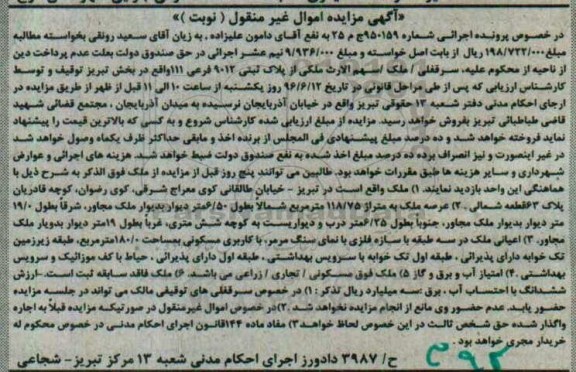 «آگهی مزایده اموال غیر منقول ( نوبت )»
در خصوص پرونده اجرائی شماره ۹۵۰۱۵۹ج م ۲۵ به نفع آقای دامون علیزاده ، به زیان آقای سعید رونقی بخواسته مطالبه
مبلغ ۱۹۸/۷۲۲/۰۰۰ ریال از بابت اصل خواسته و مبلغ ۹/۹۳۶/۰۰۰ نیم عشر اجرائی در حق صندوق دولت بعلت عدم پرداخت دین
از ناحیه از محکوم علیه، سرقفلی / ملک / سهم الارث ملکی از پلاک ثبتی ۹۰۱۲ فرعی ۱۱۱واقع در بخش تبریز توقیف و توسط
کارشناس ارزیابی که پس از طی مراحل قانونی در تاریخ ۹۶/۶/۱۲ روز یکشنبه از ساعت ۱۰ الی ۱۱ قبل از ظهر از طریق مزایده در
اجرای احکام مدنی دفتر شعبه ۱۳ حقوقی تبریز واقع در خیابان آذربایجان نرسیده به میدان آذربایجان ، مجتمع قضائی شهید
قاضی طباطبائی تبریز بفروش خواهد رسید. مزایده از مبلغ ارزیابی شده کارشناس شروع و به کسی که بالاترین قیمت را پیشنهاد
نماید فروخته خواهد شد و ده درصد مبلغ پیشنهادی فی المجلس از برنده اخذ و مابقی حداکثر ظرف یکماه وصول خواهد شد
در غیر اینصورت و نیز انصراف برنده ده درصد مبلغ اخذ شده به نفع صندوق دولت ضبط خواهد شد. هزینه های اجرائی و عوارض
شهرداری و سایر هزینه ها طبق مقررات خواهد بود. طالبین می توانند پنج روز قبل از مزایده از ملک فوق الذکر به شرح ذیل با
هماهنگی این واحد بازدید نمایند. ۱) ملک واقع است در تبریز - خیابان طالقانی کوی معراج شرقی، کوی رضوان، کوچه قادریان
پلاک ۶۳قطعه شمالی ۲۰) عرصه ملک به متراژ ۱۱۸/۷۵ مترمربع شمالاً بطول ۶/۵۰متر دیوار بدیوار ملک مجاور، شرقاً بطول ۱۹/۰
متر دیوار بدیوار ملک مجاور، جنوباً بطول ۶/۲۵متر درب و دیواریست به کوچه شش متری، غرباً بطول ۱۹متر دیوار بدیوار ملک
مجاور. ۳) اعیانی ملک در سه طبقه با سازه فلزی با نمای سنگ مرمر، با کاربری مسکونی بمساحت ۱۸۰/۰مترمربع، طبقه زیرزمین
تک خوابه دارای پذیرائی ، طبقه اول تک خوابه با سرویس بهداشتی ، طبقه اول دارای پذیرائی ، حیاط با کف موزائیک و سرویس
بهداشتی .۴) امتیاز آب و برق و گاز ۵) ملک فوق مسکونی / تجاری / زراعی می باشد. ۶) ملک فاقد سابقه ثبت است.-ارزش
ششدانگ با احتساب آب ، برق :سه میلیارد ریال تذکر : ۱) در خصوص سرقفلی های توقیفی مالک می تواند در جلسه مزایده
حضور یابد. عدم حضور وی مانع از انجام مزایده نخواهد شد .۲)در خصوص اموال غیرمنقول در صورتیکه مزایده قبلاً به اجاره
واگذار شده حق شخص ثالث در این خصوص لحاظ خواهد.۳) مفاد ماده ۱۴۴قانون اجرای احکام مدنی در خصوص محکوم له
خریدار مجری خواهد بود .
ح/ ۳۹۸۷ دادورز اجرای احکام مدنی شعبه ۱۳ مرکز تبریز- شجاعی